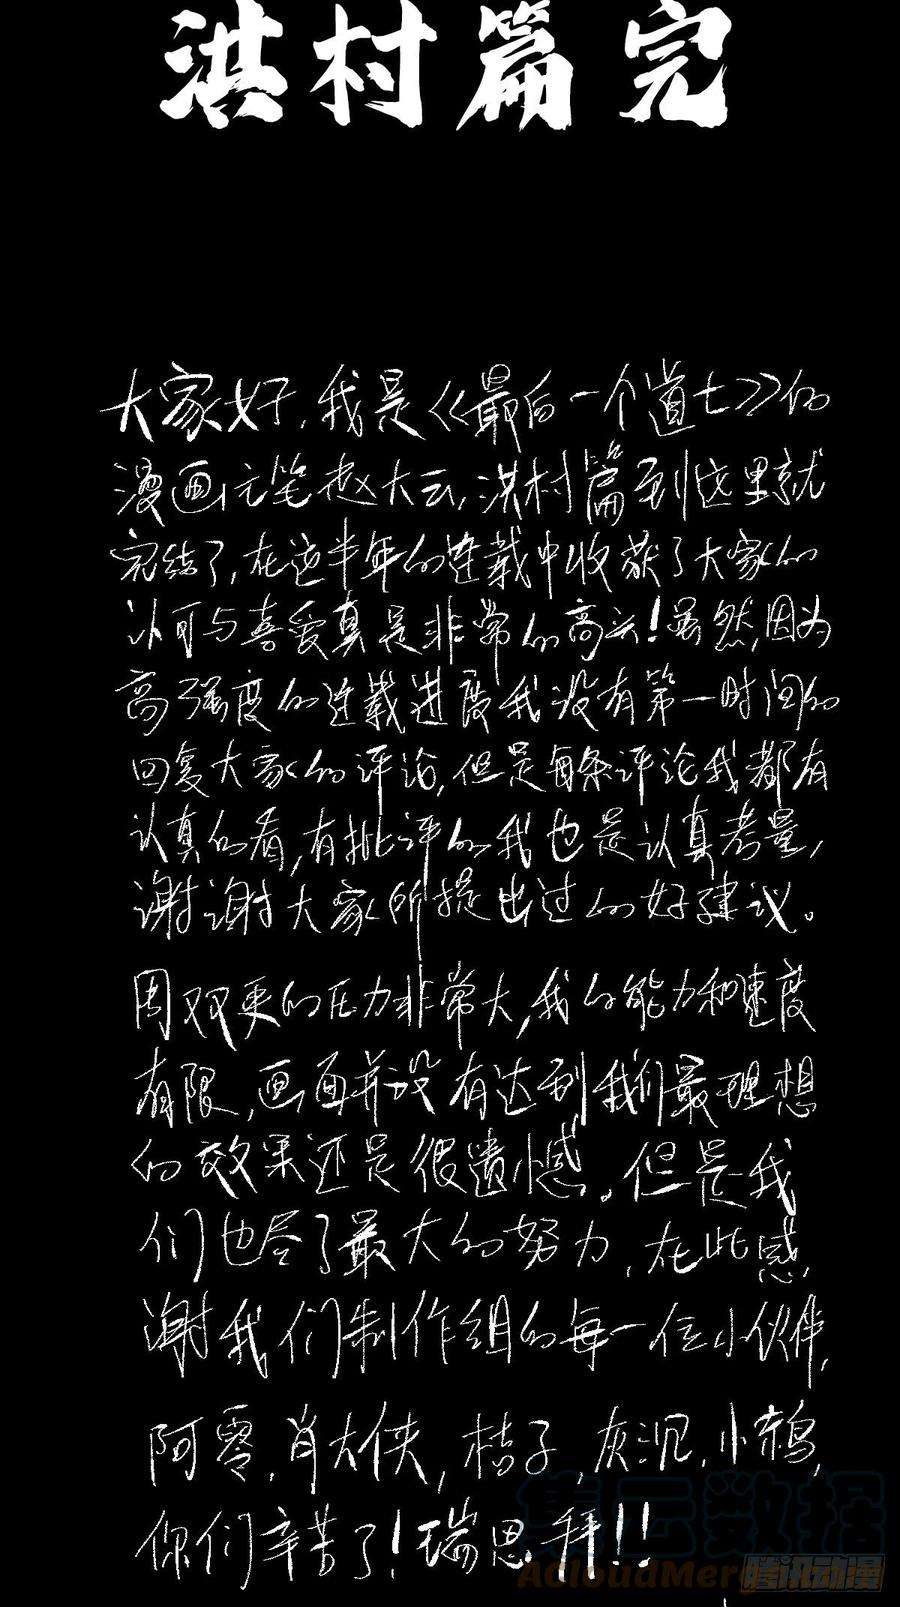 洪村篇完
大家好,我是《最后一个道士》的
漫画主笔赵大云,洪村篇到这里就
完结了,在这半年的连载中收获了大家的
认可与喜爱真是非常的高兴!虽然,因为
高强度的连载进度我没有第一时间的
回复大家的评论,但是每条评论我都有
认真的看,有批评的我也是认真考量,
谢谢大家所提出过的好建议。
周双更的压力非常大,我的能力和速度
有限,画面并没有达到我们最理想
的效果还是很遗憾。但是我
们也尽了最大的努力,在此感
谢我们制作组的每一位小伙伴,
阿零,肖大侠,桔子,灰泥,小鸦,
你们辛苦了!瑞思拜!!
集云数据
AcloudMerge
腾讯动漫